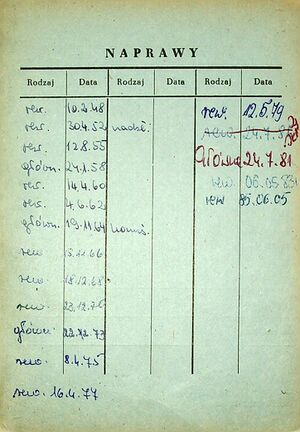 NAPRAWY
Rodzaj Data Rodzaj Data Rodzaj Data
rew. 10.2.48
rew. 30.4.52
rew. 12.8.55
główn. 24.1.58
rew. 14.4.60
rew. 4.6.62
główn. 19.11.64
rew. 15.11.66
rew. 18.12.68
rew.
główn. 22.12.73
rew. 8.4.75
rew. 16.4.77
rew. 12.5.79
rew. 24.7.81
Główna 24.7.81
rew. 06.05.83
rew. 85.06.05